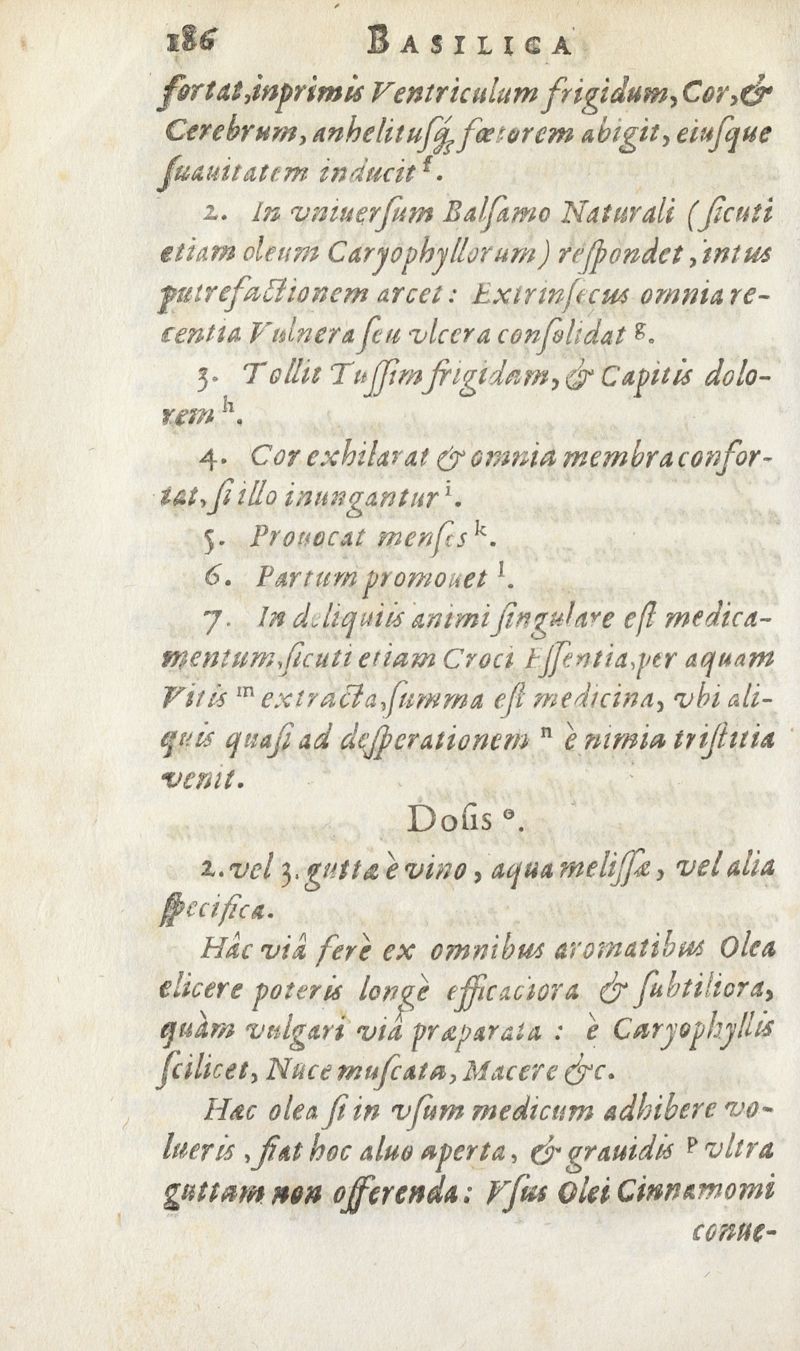 186 BASILICA
fortat, inprimis Ventriculum frigidum, Cor, &
Cerebrum, anhelitusq́; fœtorem abigit, eiusque
ſuauitatem inducit f.
2. In vniuerſum Balſamo Naturali (ſicuti
etiam oleum Caryophyllorum) reſpondet, intus
putrefactionem arcet: Extrinſecus omnia re-
centia Vulnera ſeu vlcera conſolidat g.
3. Tollit Tuſſim frigidam, & Capitis dolo-
rem h.
4. Cor exhilarat & omnia membra confor-
tat, ſi illo inungantur i.
5. Prouocat menſes k.
6. Partum promouet l.
7. In deliquiis animi ſingulare eſt medica-
mentum, ſicuti etiam Croci Eſſentia, per aquam
Vitis m extracta, ſumma eſt medicina, vbi ali-
quis quaſi ad deſperationem n è nimia triſtitia
venit.
Doſis o.
2. vel 3. guttæ è vino, aqua meliſſæ, vel alia
ſpecifica.
Hâc viâ ferè ex omnibus aromatibus Olea
elicere poteris longè efficaciora & ſubtiliora,
quàm vulgari viâ præparata : è Caryophyllis
ſcilicet, Nuce muſcata, Macere &c.
Hæc olea ſi in vſum medicum adhibere vo-
lueris, fiat hoc aluo aperta, & grauidis p vltra
guttam non offerenda: Vſus Olei Cinnamomi
conue-